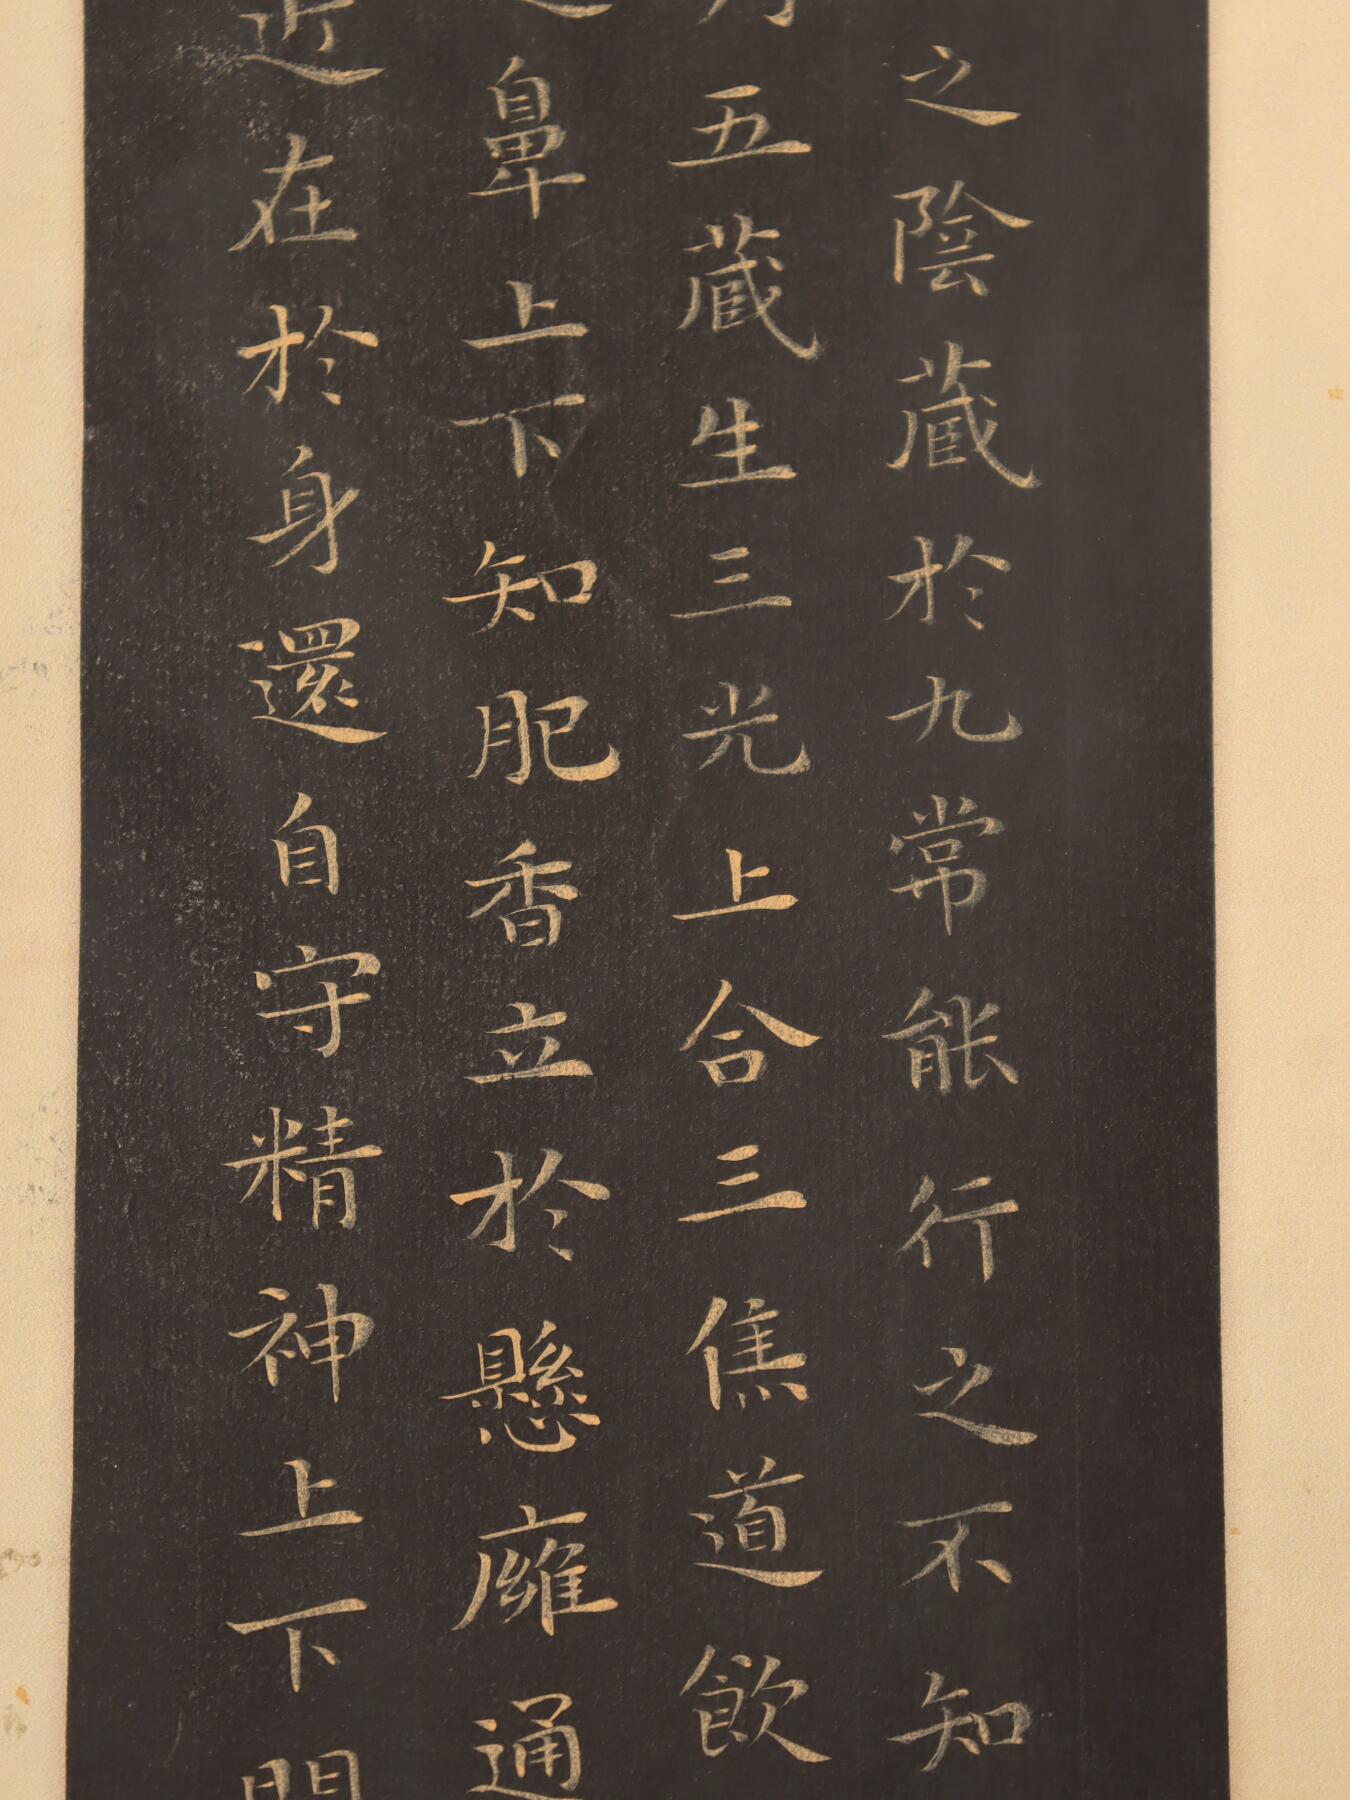 之陰藏於九常能行之不知
五藏生三光上合三焦道飲
鼻上下知肥香立於懸癰通
近在於身還自守精神上下開